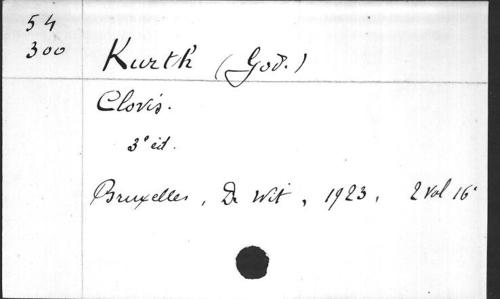 54
300
Kurth (God.)
Clovis.
3e éd.
Bruxelles, De Wit, 1923, 2 vol 16°